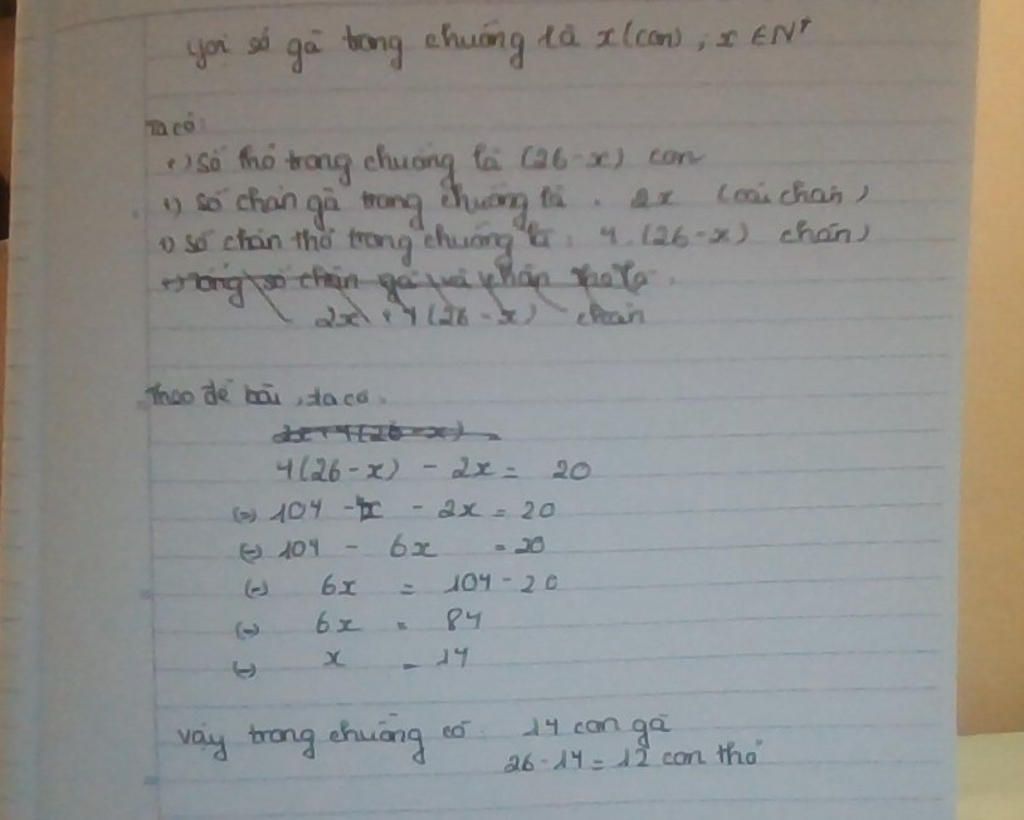 gọi số gà trong chuồng là x (con) ; x ∈ N*
Ta có:
+) Số thỏ trong chuồng là (26 - x) con
+) số chân gà trong chuồng là : 2x (cái chân)
+) số chân thỏ trong chuồng là : 4. (26 - x) chân)
+) Tổng số chân gà và chân thỏ là :
2x + 4(26 - x) chân
Theo đề bài, ta có:
2x + 4(26 - x) =
4(26 - x) - 2x = 20
(=) 104 - 4x - 2x = 20
(=) 104 - 6x = 20
(=) 6x = 104 - 20
(=) 6x = 84
(=) x = 14
Vậy trong chuồng có : 14 con gà
26 - 14 = 12 con thỏ